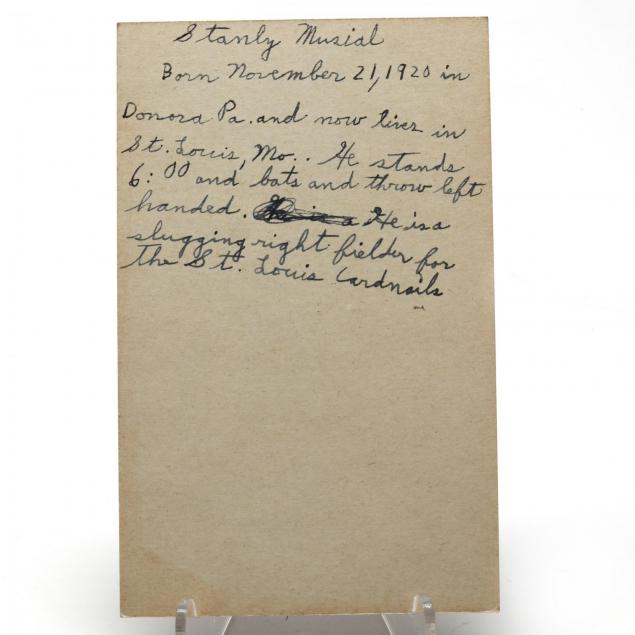 Stanly Musial
Born November 21, 1920 in
Donora Pa. and now lives in
St. Louis, Mo.. He stands
6:00 and bats and throw left
handed. He is a
slugging right fielder for
the St. Louis Cardnails